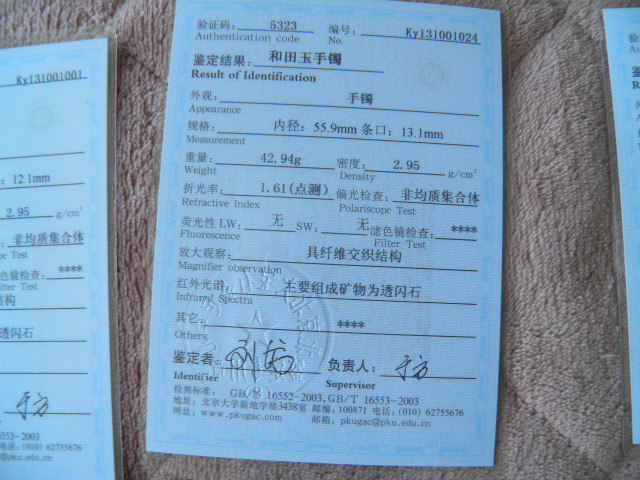 验证码： 5323 编号： Ky131001024
Authentication code No.
鉴定结果： 和田玉手镯
Result of Identification
外观： 手镯
Appearance
规格： 内径：55.9mm 条口：13.1mm
Measurement
重量： 42.94g 密度： 2.95 g/cm³
Weight Density
折光率： 1.61(点测) 偏光检查： 非均质集合体
Refractive Index Polariscope Test
荧光性 LW： 无 SW： 无 滤色镜检查： ****
Fluorescence Filter Test
放大观察： 具纤维交织结构
Magnifier observation
红外光谱： 主要组成矿物为透闪石
Infrared Spectra
其它： ****
Others
鉴定者： 负责人： 于方
Identifier Supervisor
检测标准： GB/T 16552-2003, GB/T 16553-2003
地址：北京大学新地学楼3438室 邮编：100871 电话：(010) 62755676
网址：www.pkugac.com 邮箱：pkugac@pku.edu.cn
Ky131001001
：12.1mm
2.95 g/cm³
非均质集合体
pe Test
色镜检查： ****
er Test
结构
透闪石
于方
6553-2003
话：(010) 62755676
@pku.edu.cn